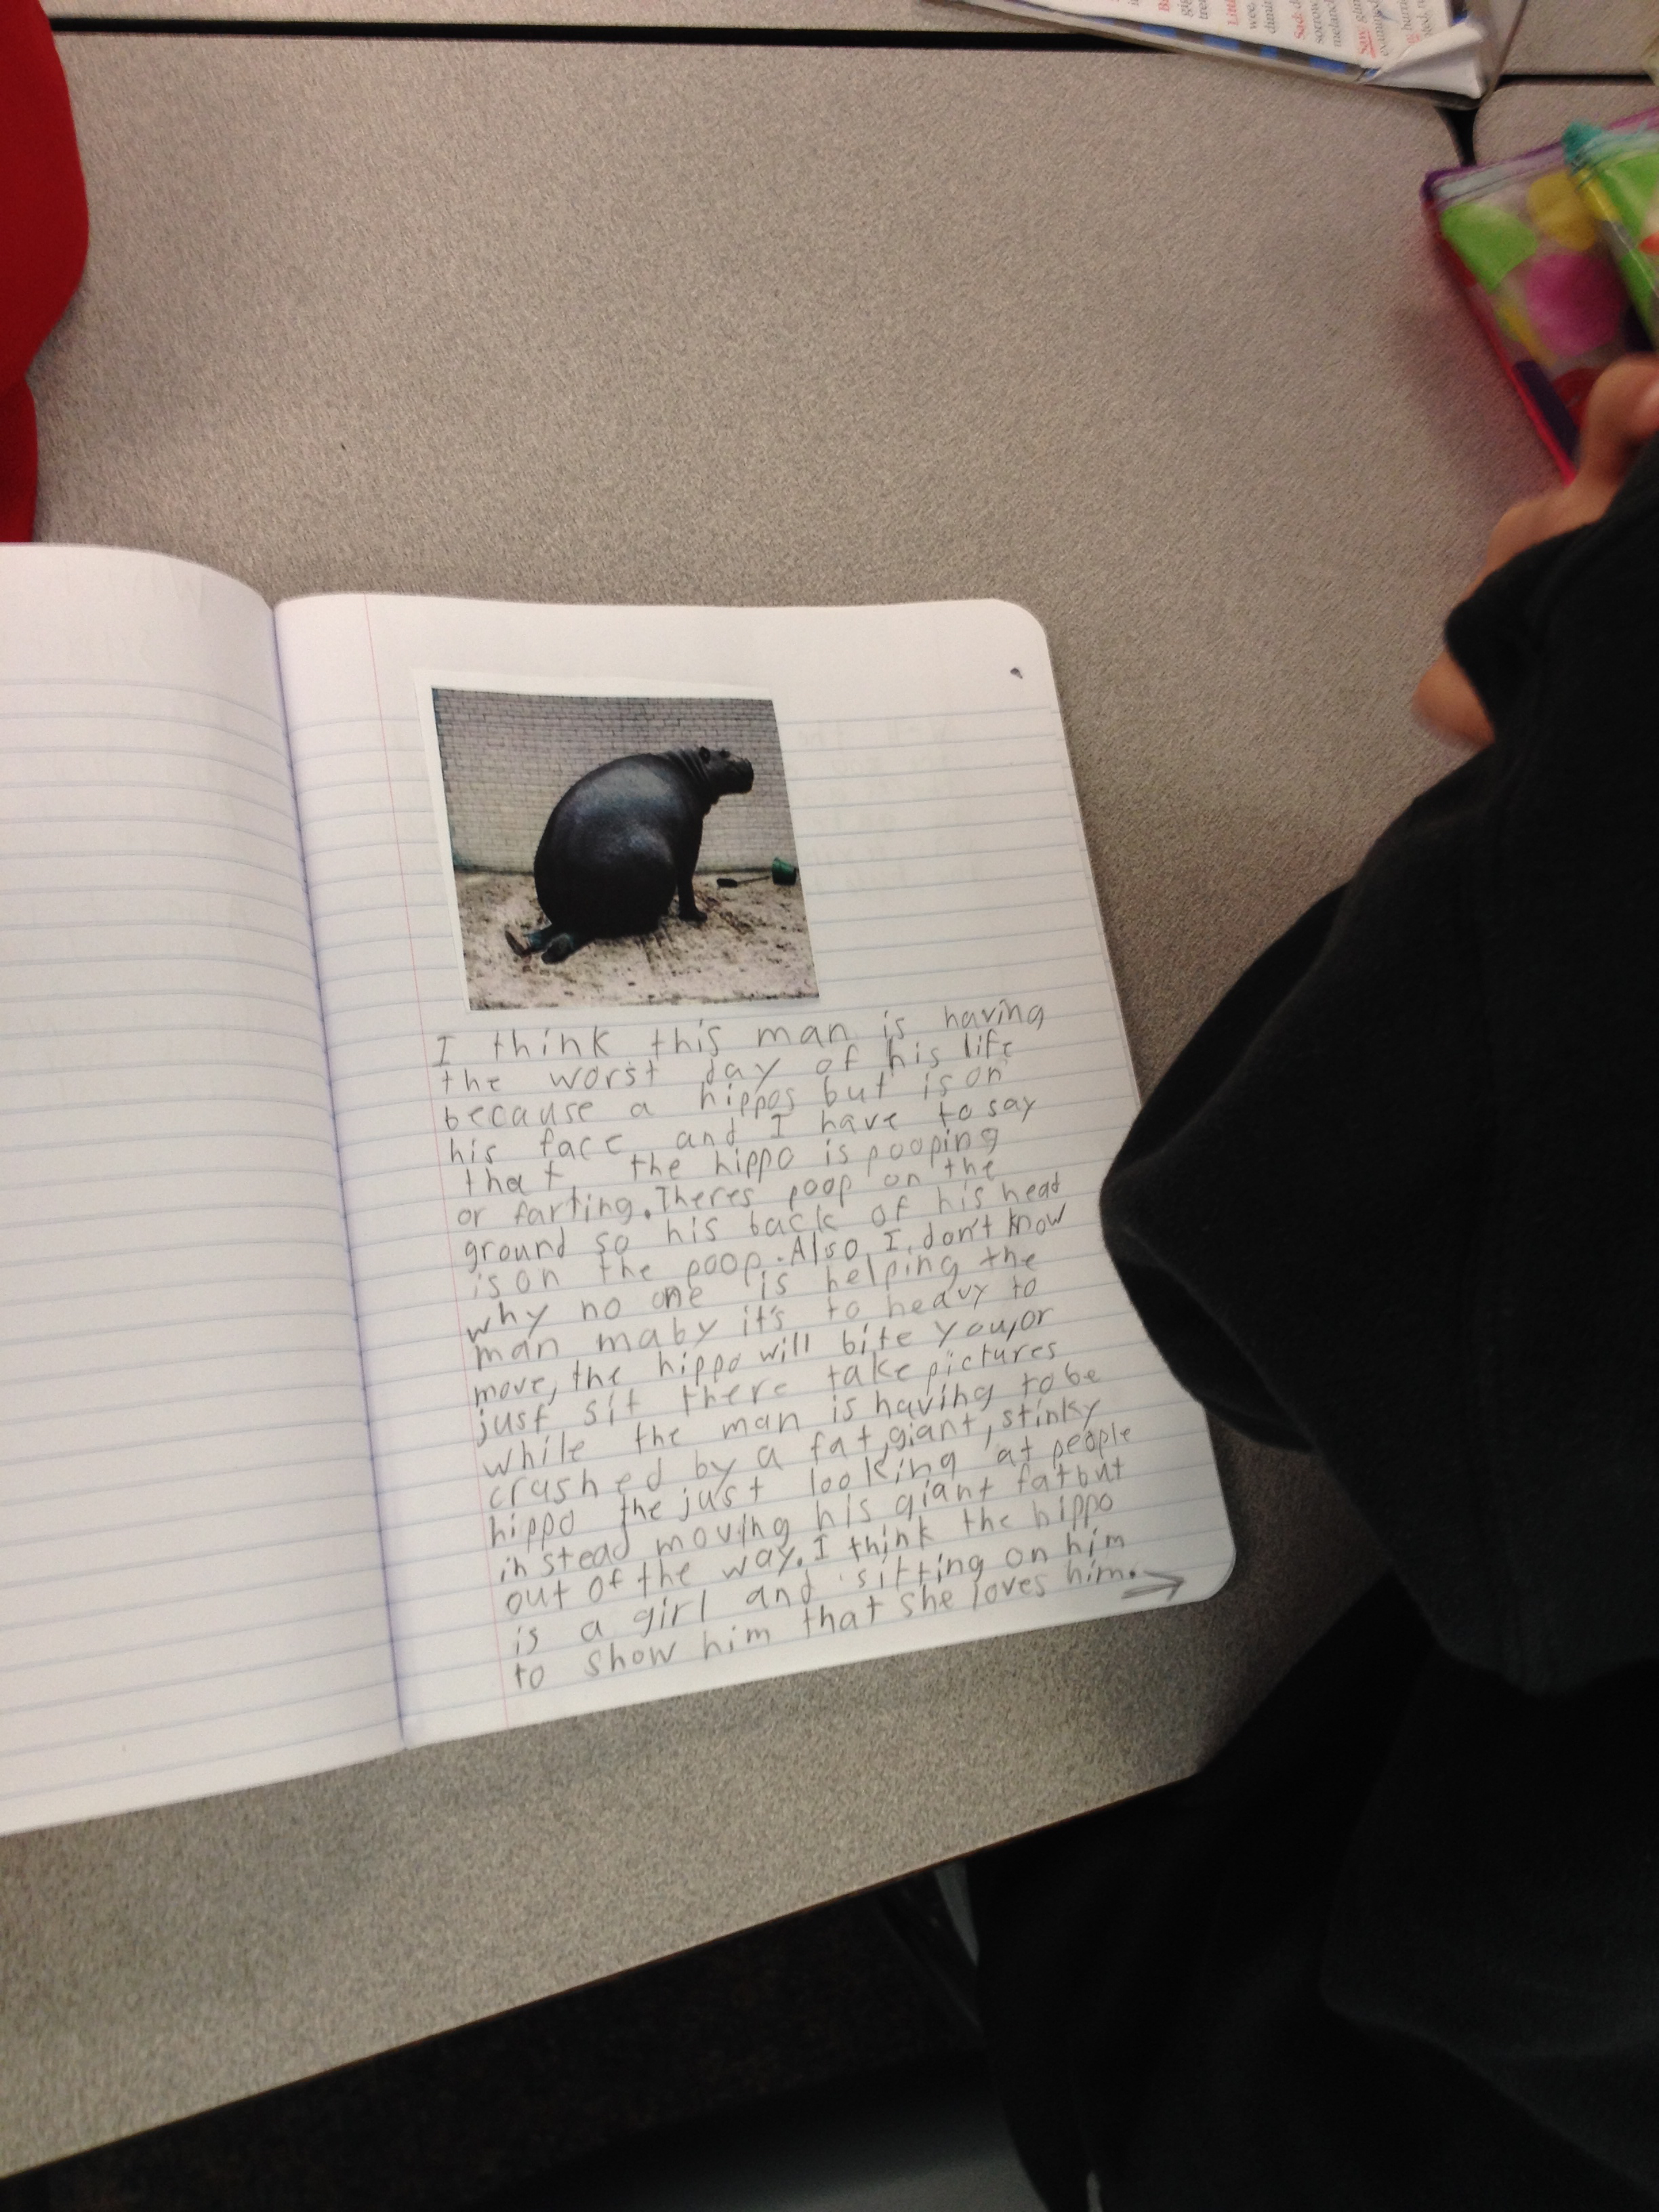 I think this man is having
the worst day of his life
because a hippos but is on
his face and I have to say
that the hippo is pooping
or farting. Theres poop on the
ground so his back of his head
is on the poop. Also I don't know
why no one is helping the
man maby it's to heavy to
move, the hippo will bite you, or
just sit there take pictures
while the man is having to be
crashed by a fat, giant, stinky
hippo the just looking at people
instead moving his giant fat but
out of the way. I think the hippo
is a girl and sitting on him
to show him that she loves him.